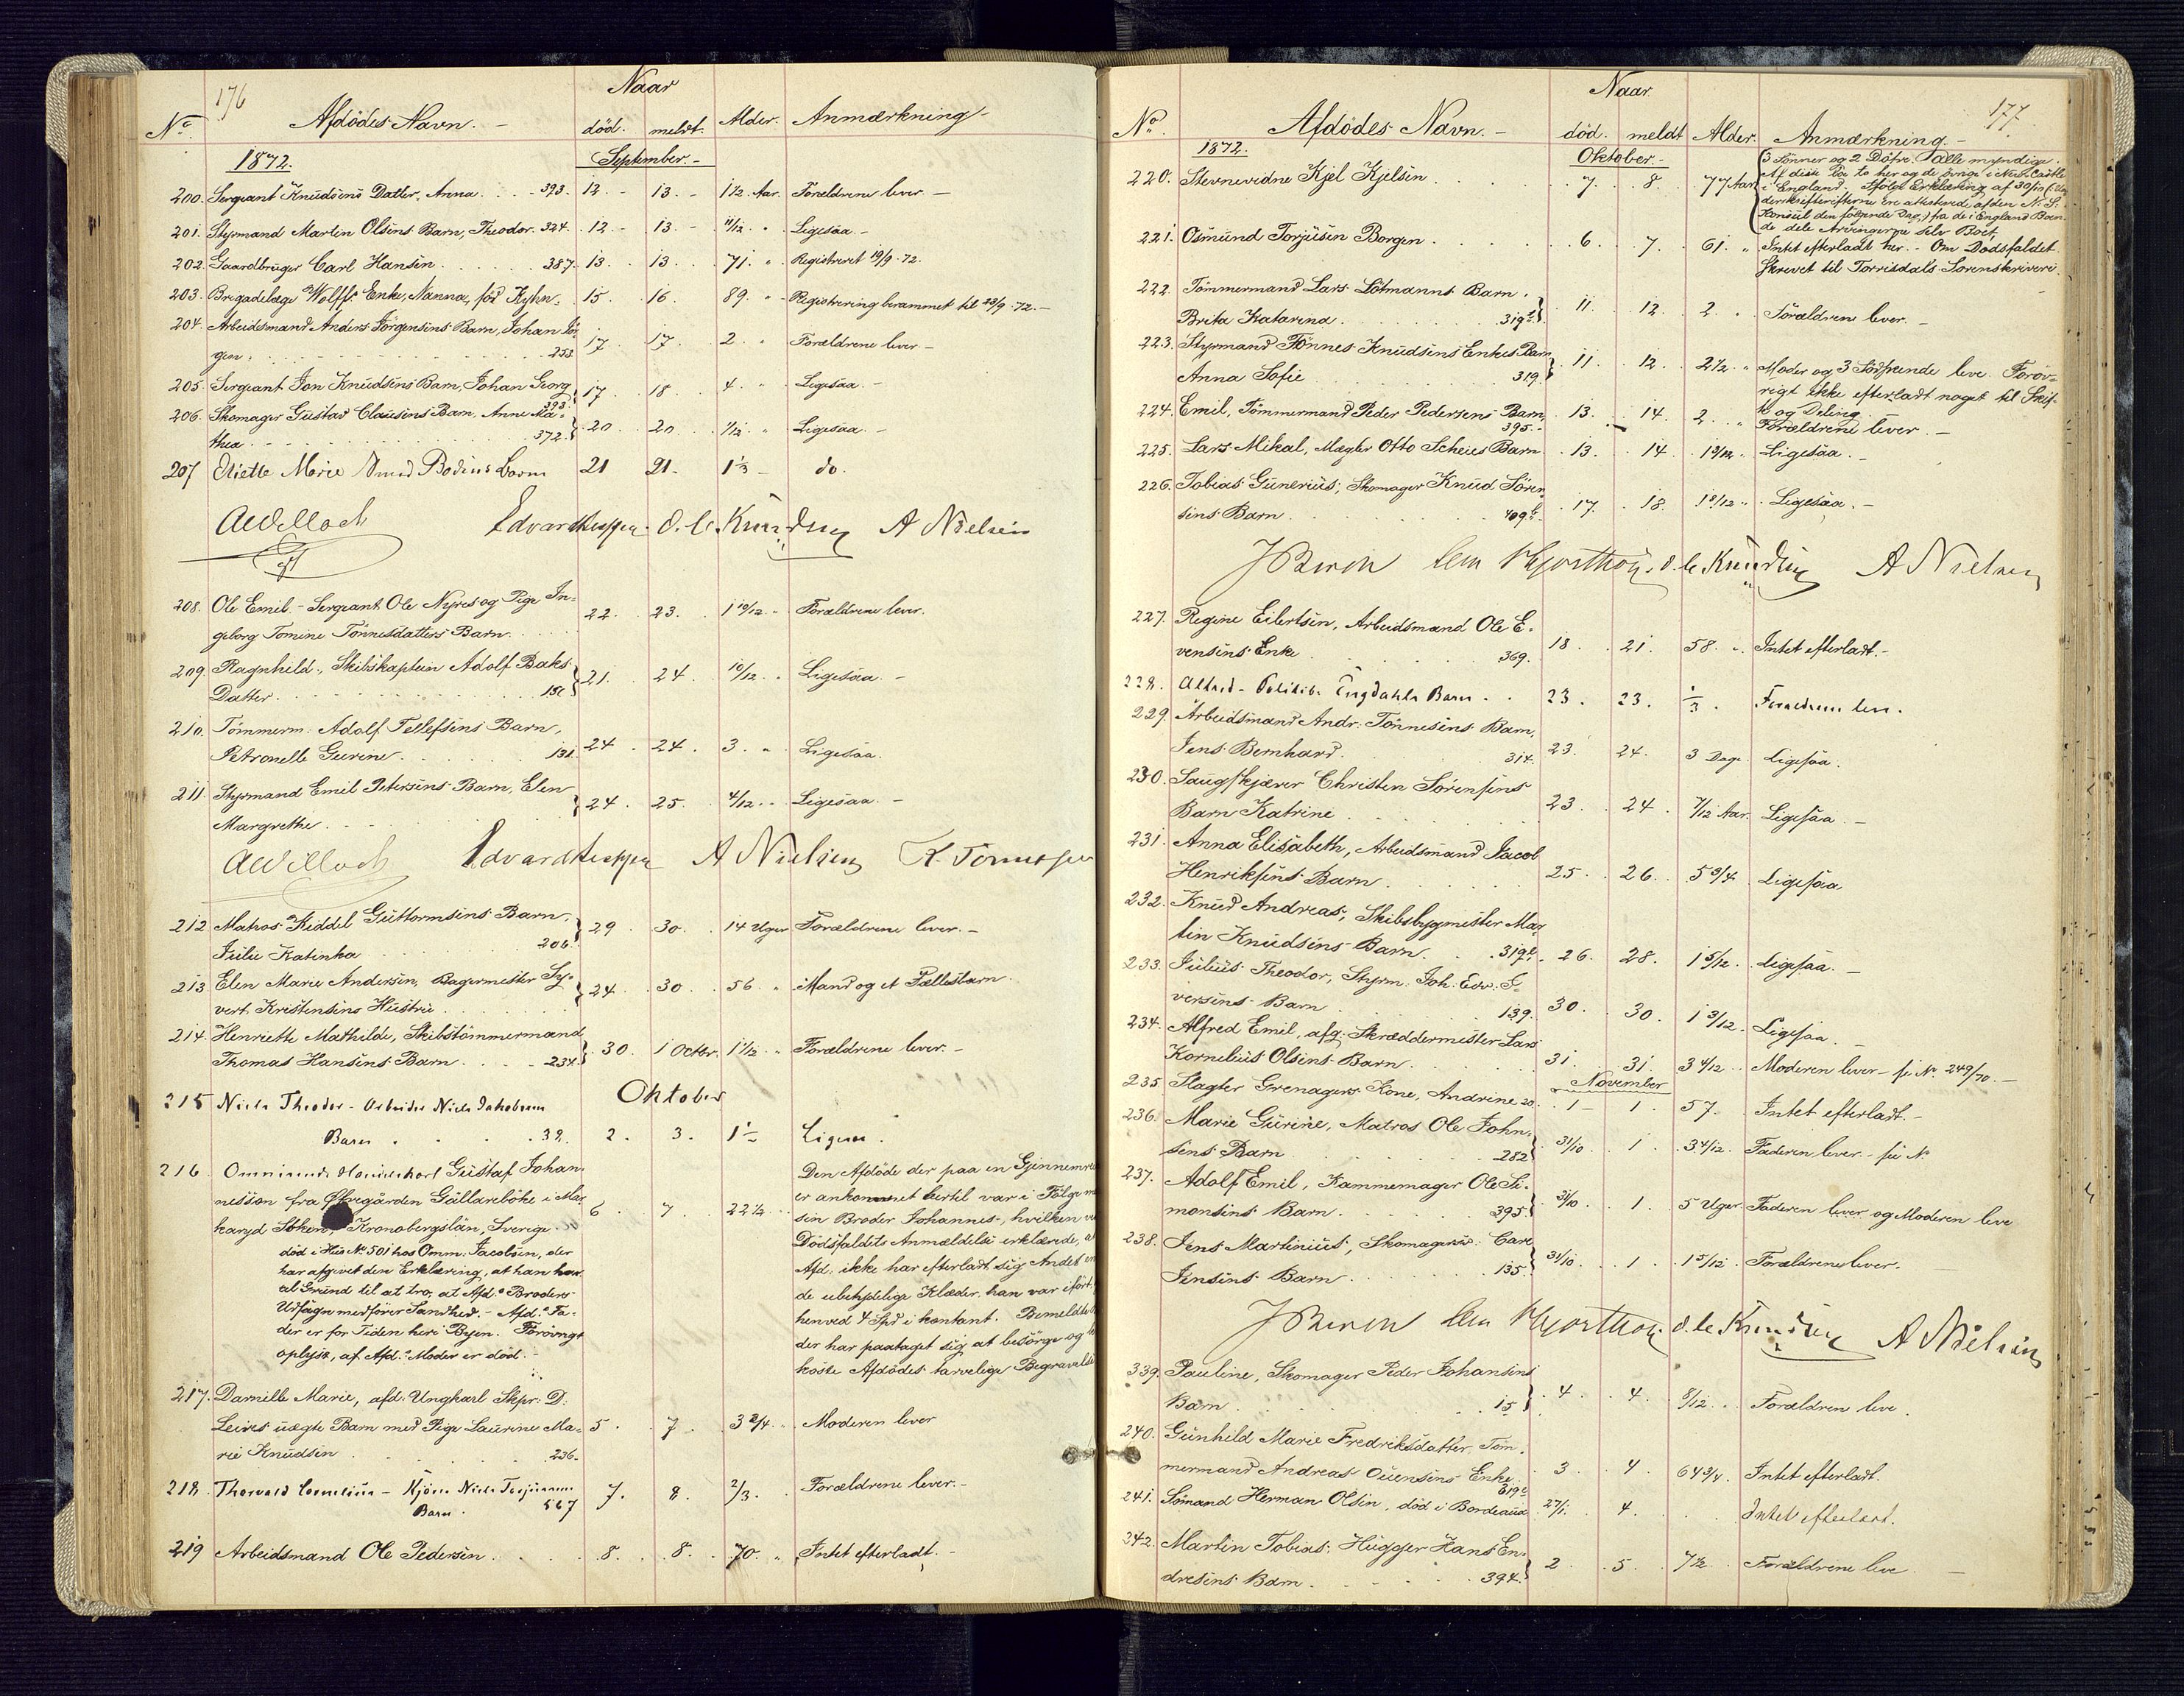 176
Naar
No. Afdødes Navn. – død. meldt. Alder. Anmærkning –
1872. September. –
200. Sergeant Knudsens Datter, Anna . . 393. 12. – 13. – 1½ Aar. Forældrene lever –
201. Styrmand Martin Olsens Barn, Theodor. 324. 12. – 13. – 11/12 " Ligesaa. –
202. Gaardbruger Carl Hansen . . . 387. 13. 13. 71. " Registreret 19/9 72.
203. Brigadelæge Wolffs Enke, Nanna, fød Kyhn. 15. 16. 89. " Registrering berammet til 23/9 72. –
204. Arbeidsmand Anders Jörgensens Barn, Johan Jör
gen. 253 17. 17. 2. " Forældrene lever –
205. Sergeant Jon Knudsens Barn, Johan Georg 393. 17. 18. 4. " Ligesaa. –
206. Skomager Gustav Clausens Barn, Anne Ma-
thea. 372. 20. 20. 1/12 " Ligesaa. –
207 Eliette Marie Smed Bodins Barn 21 21. 1⅓ – do.
O. C. Knudsen A Nielsen
208. Ole Emil. – Sergeant Ole Nyres og Pige In-
geborg Tomine Tönnesdatters Barn. 22. 23. 1 10/12 " Forældrene lever.
209. Ragnhild, Skibskaptein Adolf Baks
Datter. 21. 24. 10/12 " Ligesaa. –
210. Tömmerm. Adolf Tellefsens Barn,
Petronelle Gurine. 131. 24. 24. 3. " Ligesaa.
211. Styrmand Emil Petersens Barn, Elen
Margrethe. 24. 25. 4/12 " Ligesaa. –
A Nielsen
212. Matros Kiddel Guttormsens Barn,
Julie Katinka 206. 29. 30. 14 Uger Forældrene lever. –
213. Elen Marie Andersen, Bagermester Sy-
vert Kristensens Hustru. 24. 30. 56 " Mand og et Fællesbarn.
214. Henriette Mathilde, Skibstömmermand
Thomas Hansens Barn. 234. 30. 1 Octbr. 1½ " Forældrene lever. –
Oktober
215 Niels Theodor – Arbeider Niels Jakobsens
Barn . 38. 2. 3. Ligesaa.
216. Gustaf Johan-
nesson fra Öfregården Gällareböke i Mar-
karyd Soken, Kronobergslän, Sverige. 6. 7. 22½ Den Afdöde der paa en Gjennemre
er ankommet hertil var i Fölge m
sin Broder Johannes, hvilken v
död i Hus No 501 hos Omm. Jacobsen, der
har afgivet den Erklæring, at han har
al Grund til at tro, at Afd.s Broders
Udsagn medförer Sandhed. – Afd.s Fa-
der er for Tiden her i Byen. Forövrigt
oplyst, af Afd.s Moder er död. –
Dödsfaldets Anmældelse erklærede, a
Afd. ikke har efterladt sig Andet en
de ubetydelige Klæder, han var ifört,
henved 4 Spd i kontant. Bemeldte
der har paataget sig at besörge og
koste Afdödes tarvelige Begravelse
217. Darnille Marie, afd. Ungkarl Skpr. D.
Leires uægte Barn med Pige Laurine Ma-
rie Knudsen 236. 5. 7. 3 2/4 " Moderen lever
218. Thorvald Cornelius – Niels Terjussens
Barn. 567 7. 8. 2/3. Forældrene lever. –
219 Arbeidsmand Ole Pedersen. 8. 8. 70. " Intet efterladt. –
177
Naar
No. Afdödes Navn. – död. meldt. Alder. Anmærkning. –
1872. Oktober. –
220. Stevnevidne Kjel Kjelsen. 7. 8. 77 Aar 3 Sönner og 2 Dötre. Alle myndige.
Af disse Bor to her og de övrige i New Castle
i England. Ifölge Erklæring af 30/10 (Un
derskrifterne ere attesterede af den N. S.
Konsul den fölgende Dag,) fra de i England Boen
de dele Arvingerne selv Boet,
221. Osmund Torjusen Borgen. 6. 7. 61. " Intet efterladt her. – Om Dödsfaldet
skrevet til Torrisdals Sorenskriveri.
222. Tömmermand Lars Lötmanns Barn.
Brita Katarina. 319 11. 12. 2. " Forældrene lever. –
223. Styrmand Tönnes Knudsens Enkes Barn
Anna Sofie 319. 11. 12. 2½ " Moder og 3 Södskende leve. Foröv-
rigt ikke efterladt noget til Skif-
te og Deling.
224. Emil, Tömmermand Peder Pedersens Barn,
395. 13. 14. 2. " Forældrene lever. –
225. Lars Mikal, Mægler Otto Scheies Barn. 13. 14. Ligesaa. –
226. Tobias Gunerius, Skomager Knud Sören-
sens Barn 409 17. 18. Ligesaa. –
O. C. Knudsen A Nielsen
227. Regine Eilertsen, Arbeidsmand Ole E-
vensens Enke 369. 18. 21. 58. " Intet efterladt. –
228. Alfred – Politib. Engdahls Barn. 23. 23. ⅓. Forældrene leve.
229. Arbeidsmand Andr. Tönnesens Barn,
Jens Bernhard. 314. 23. 24. 3 Dage. Ligesaa.
230. Saugskjærer Christen Sörensens
Barn Katrine 23. 24. 7/12 Aar. Ligesaa. –
231. Anna Elisabeth, Arbeidsmand Jacob
Henriksens Barn. 25. 26. 5 3/4. Ligesaa
232. Knud Andreas, Skibsbygmester Mar-
tin Knudsens Barn. 319 26. 28. 1 5/12. Ligesaa. –
233. Julius Theodor, Styrm. Joh. Edv. I-
versens Barn 139. 30. 30. 1 3/12. Ligesaa. –
234. Alfred Emil, afg. Skræddermester Lars
Kornelius Olsens Barn. 31. 31. 3 4/12. Moderen lever – se No. 249/70. –
November
235. Slagter Grenagers Kone, Andrine 20. 1 – 1. 57. Intet efterladt. –
236. Marie Gurine, Matros Ole John-
sens Barn 282. 31/10. 1. 3 4/12. Faderen lever. – se No
237. Adolf Emil, Kammemager Ole Si-
monsens Barn. 395. 31/10. 1. 5 Uger. Faderen lever og Moderen leve
238. Jens Martinius, Skomagersv. Carl
Jensens Barn. 135. 31/10. 1. 1 5/12. Forældrene lever. –
O. C. Knudsen A Nielsen
339. Pauline, Skomager Peder Johansens
Barn. 15. 4. 4. 8/12. Forældrene leve.
240. Gunhild Marie Fredriksdatter, Töm-
mermand Andreas Ouensens Enke. 319 3. 4. 64 3/4. Intet efterladt.
241. Sömand Herman Olsen, död i Bordeaux 27/1. 4. Intet efterladt.
242. Martin Tobias, Hugger Hans En-
dresens Barn. 394. 2. 5. 7½. Forældrene leve –